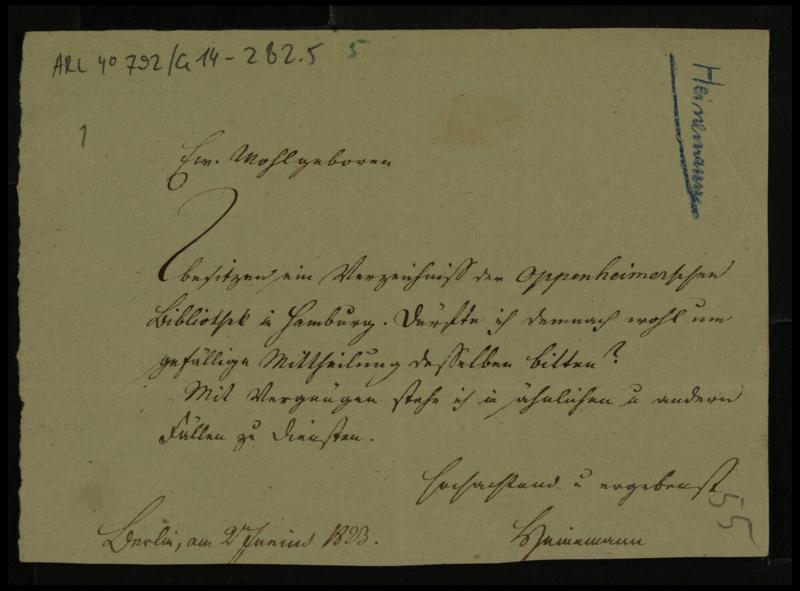 ARC 4° 792/G 14-282.5 5
Heinemann
1
Ew. Wohlgeboren
besitzen ein Verzeichniß der Oppenheimerschen
Bibliothek in Hamburg. Dürfte ich demnach wohl um
gefällige Mittheilung desselben bitten?
Mit Vergnügen stehe ich in ähnlichen u andern
Fällen zu Diensten.
hochachtend u ergebenst
55
Berlin, am 2 Junius 1823.
Heinemann